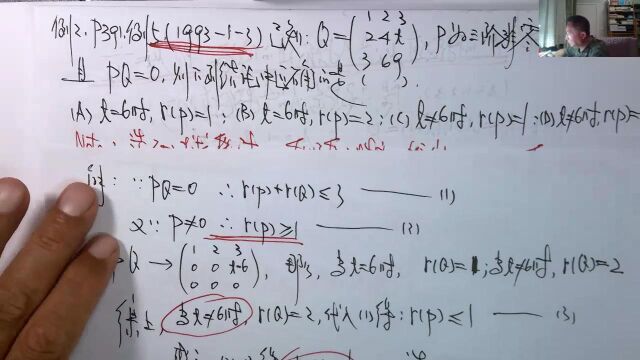 例2. P391.例七(1993-1-3) 已知: Q=(1 2 3; 2 4 t; 3 6 9), P为三阶非零
且 PQ=0, 则下列结论中正确的是( )
(A) t=6时, r(P)=1; (B) t=6时, r(P)=2; (C) t≠6时, r(P)=1; (D) t≠6时, r(P)=
解: ∵ PQ=0 ∴ r(P)+r(Q)≤3 ——— (1)
又∵ P≠0 ∴ r(P)≥1 ——— (2)
Q → (1 2 3; 0 0 t-6; 0 0 0), 那么, 当t=6时, r(Q)=1; 当t≠6时, r(Q)=2
当t≠6时, r(Q)=2, 代入(1)得: r(P)≤1 —— (3)